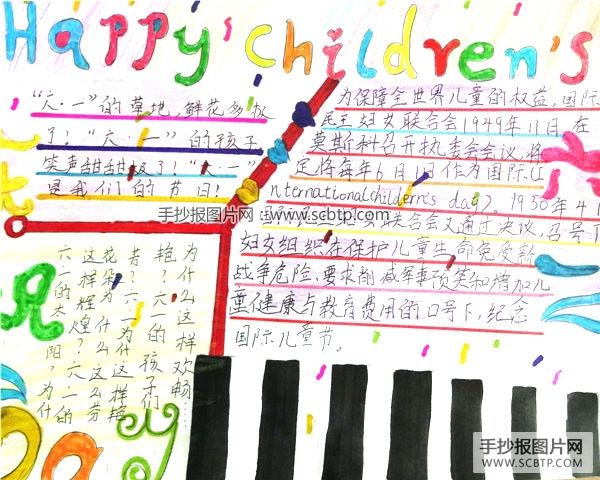 Happy children's
"六·一"的草地,鲜花多极
了!"六·一"的孩子
笑声甜甜极了!"六·一"
是我们的节日!
为保障全世界儿童的权益,国际
民主妇女联合会1949年11月在
莫斯科召开执委会会议,
定将每年6月1日作为国际儿
nternationalchildern's day)。1950年4月
联合会又通过决议,号召
妇女组织在保护儿童生命免受新
战争危险、要求削减军事预算和增加儿
童健康与教育费用的口号下,纪念
国际儿童节。
六一的太阳 为什
这样辉煌?六一的
花朵为什么这么芳
为什么这样艳
艳?六一的孩子们
为什么这样欢畅……
手抄报图片网 www.scbtp.com
手抄报图片网
WWW.SCBTP.COM